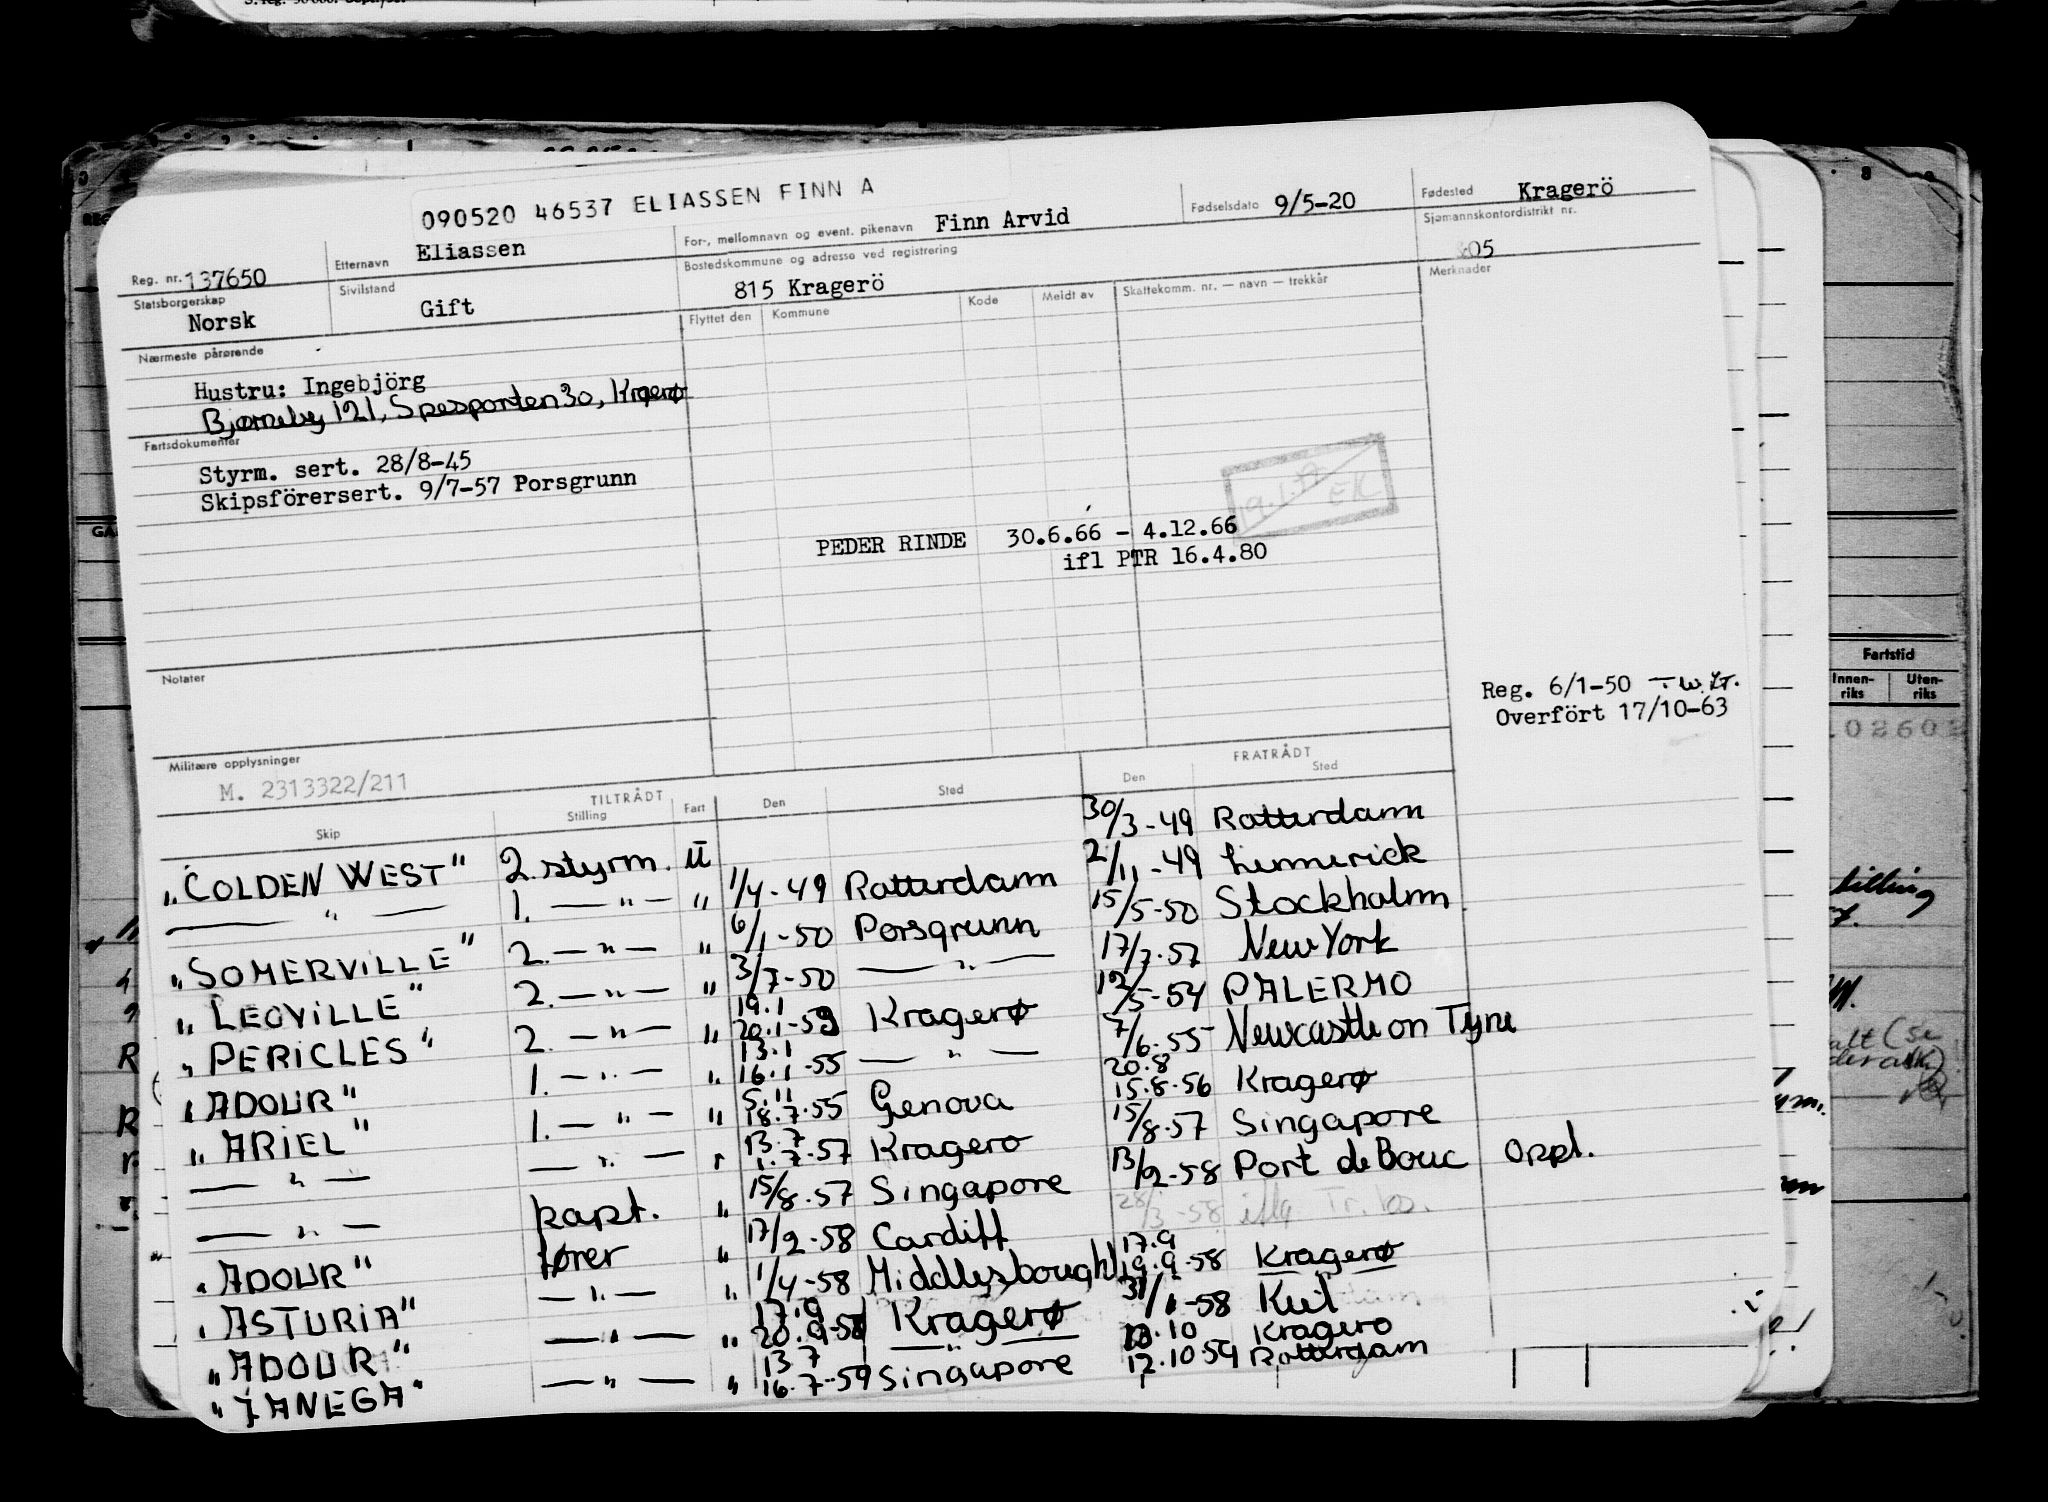 090520 46537 ELIASSEN FINN A
Reg. nr. 137650
Etternavn Eliassen
For-, mellomnavn og event. pikenavn Finn Arvid
Fødselsdato 9/5-20
Fødested Kragerö
Statsborgerskap Norsk
Sivilstand Gift
Bostedskommune og adresse ved registrering
815 Kragerö
Sjømannskontordistrikt nr.
05
Nærmeste pårørende
Flyttet den Kommune Kode Meldt av Skattekomm. nr. — navn — trekkår Merknader
Hustru: Ingebjörg
Bjørneby 121, Spesporten 30, Kragerø
Fartsdokumenter
Styrm. sert. 28/8-45
Skipsförersert. 9/7-57 Porsgrunn
PEDER RINDE 30.6.66 - 4.12.66
ifl PTR 16.4.80
Notater
Reg. 6/1-50
Overfört 17/10-63
Militære opplysninger
M. 2313322/211
TILTRÅDT FRATRÅDT
Skip Stilling Fart Den Sted Den Sted
30/3-49 Rotterdam
"GOLDEN WEST" 2. styrm. U 1/4-49 Rotterdam 2/11-49 Limerick
— " — 1. — " — " 6/1-50 Porsgrunn 15/5-50 Stockholm
"SOMERVILLE" 2. — " — " 3/7-50 — " — 17/7-57 New York
"LEOVILLE" 2. — " — " 19.1 20.1-53 Kragerø 12/5-54 PALERMO
"PERICLES" 2. — " — " 13.1 16.1-55 — " — 7/6-55 Newcastle on Tyne
"ADOUR" 1. — " — " 5.11 18.7.55 Genova 20.8 15.8.56 Kragerø
"ARIEL" 1. — " — " 13.7 1.7.57 Kragerø 15/8-57 Singapore
— " — — " — " 15/8.57 Singapore 13/2-58 Port de Bouc Oppl.
— " — kapt. " 17/2-58 Cardiff 28/3-58
"ADOUR" fører " 1/4-58 Middlesbough 17.9 19.9-58 Kragerø
"ASTURIA" — " — " 17.9 20.9-58 Kragerø 31/1-58 Kiel
"ADOUR" — " — " 13.7 — " — 10 Kragerø
"TANEGA" — " — " 16.7-59 Singapore 12.10 59 Rotterdam
Fartstid
Innen-riks Uten-riks
02602